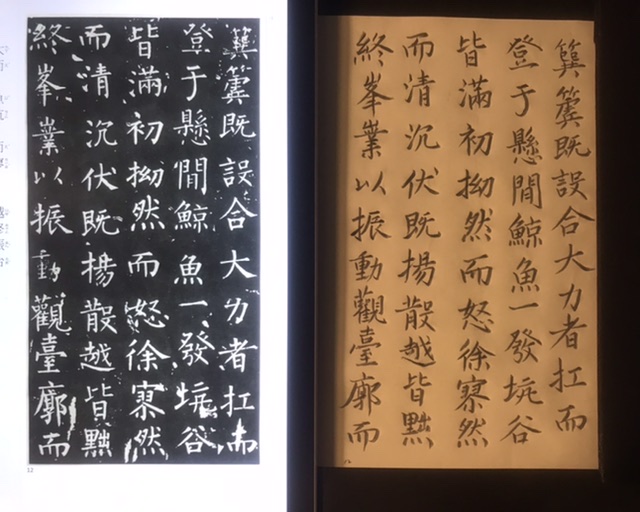 簨簴既設合大力者扛而
登于懸間鯨魚一發坑谷
皆滿初拗然而怒徐寥然
而清沉伏既揚散越皆黙
終峯業以振動觀臺廓而
12
簨簴既設合大力者扛而
登于懸間鯨魚一發坑谷
皆滿初拗然而怒徐寥然
而清沉伏既揚散越皆黙
終峯業以振動觀臺廓而